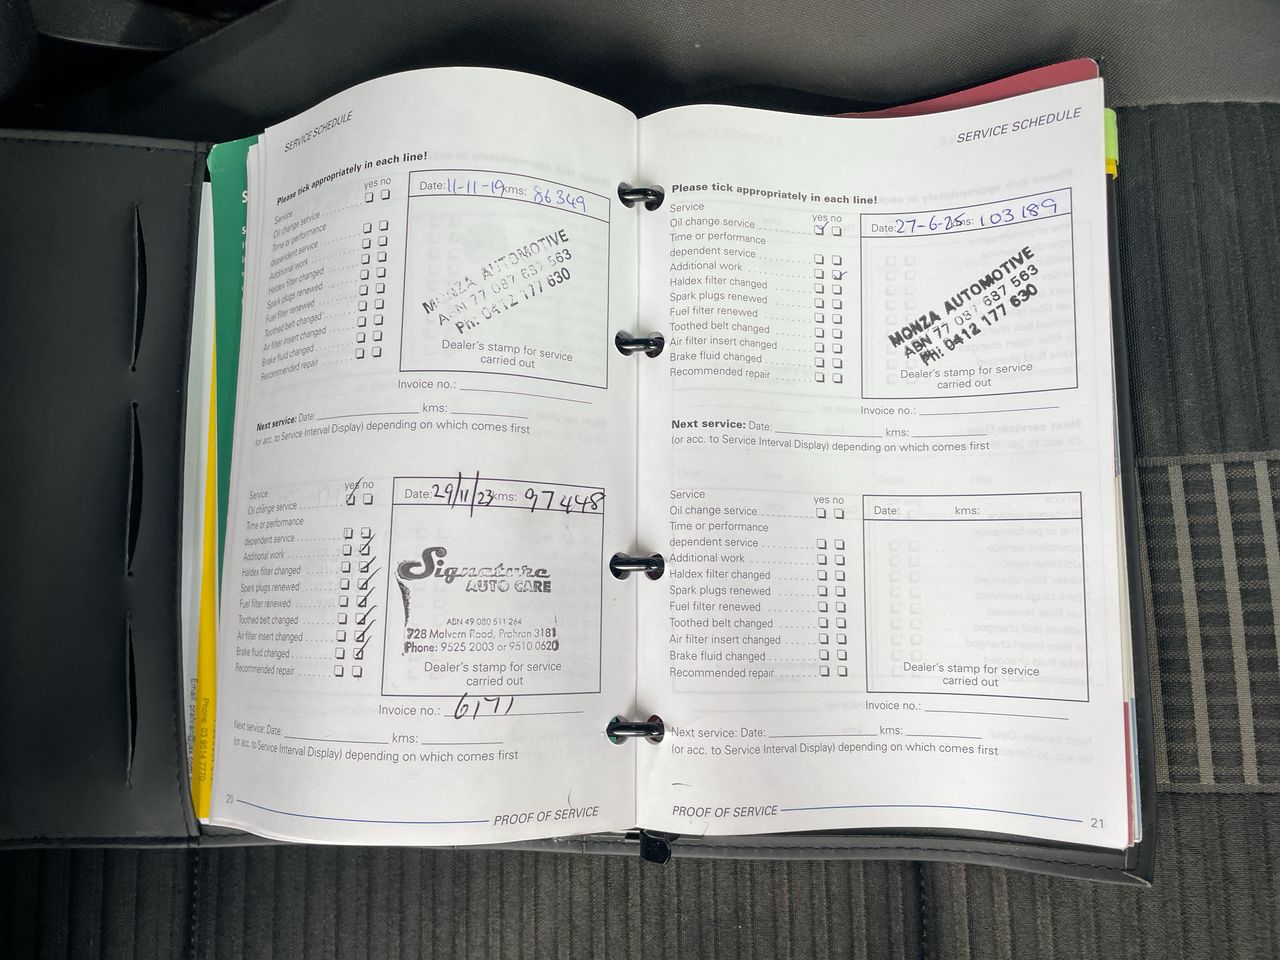 SERVICE SCHEDULE
Please tick appropriately in each line!
yes no
Service
Oil change service
Time or performance
dependent service
Additional work
Haldex filter changed
Spark plugs renewed
Fuel filter renewed
Toothed belt changed
Air filter insert changed
Brake fluid changed
Recommended repair
Date: 11-11-19 kms: 86349
MONZA AUTOMOTIVE
ABN 77 087 687 563
Ph: 0412 177 630
Dealer's stamp for service
carried out
Invoice no.:
Next service: Date: kms:
(or acc. to Service Interval Display) depending on which comes first
Service
yes no
Oil change service
Time or performance
dependent service
Additional work
Haldex filter changed
Spark plugs renewed
Fuel filter renewed
Toothed belt changed
Air filter insert changed
Brake fluid changed
Recommended repair
Date: 29/11/23 kms: 97448
Signature
AUTO CARE
ABN 49 080 511 264
728 Malvern Road, Prahran 3181
Phone: 9525 2003 or 9510 0620
Dealer's stamp for service
carried out
Invoice no.: 6171
Next service: Date: kms:
(or acc. to Service Interval Display) depending on which comes first
20
PROOF OF SERVICE
Phone: 03 9514 7770
SERVICE SCHEDULE
Please tick appropriately in each line!
Service
yes no
Oil change service
Time or performance
dependent service
Additional work
Haldex filter changed
Spark plugs renewed
Fuel filter renewed
Toothed belt changed
Air filter insert changed
Brake fluid changed
Recommended repair
Date: 27-6-25 kms: 103189
MONZA AUTOMOTIVE
ABN 77 087 687 563
PH: 0412 177 630
Dealer's stamp for service
carried out
Invoice no.:
Next service: Date: kms:
(or acc. to Service Interval Display) depending on which comes first
Service
yes no
Oil change service
Time or performance
dependent service
Additional work
Haldex filter changed
Spark plugs renewed
Fuel filter renewed
Toothed belt changed
Air filter insert changed
Brake fluid changed
Recommended repair
Date: kms:
Dealer's stamp for service
carried out
Invoice no.:
Next service: Date: kms:
(or acc. to Service Interval Display) depending on which comes first
PROOF OF SERVICE
21